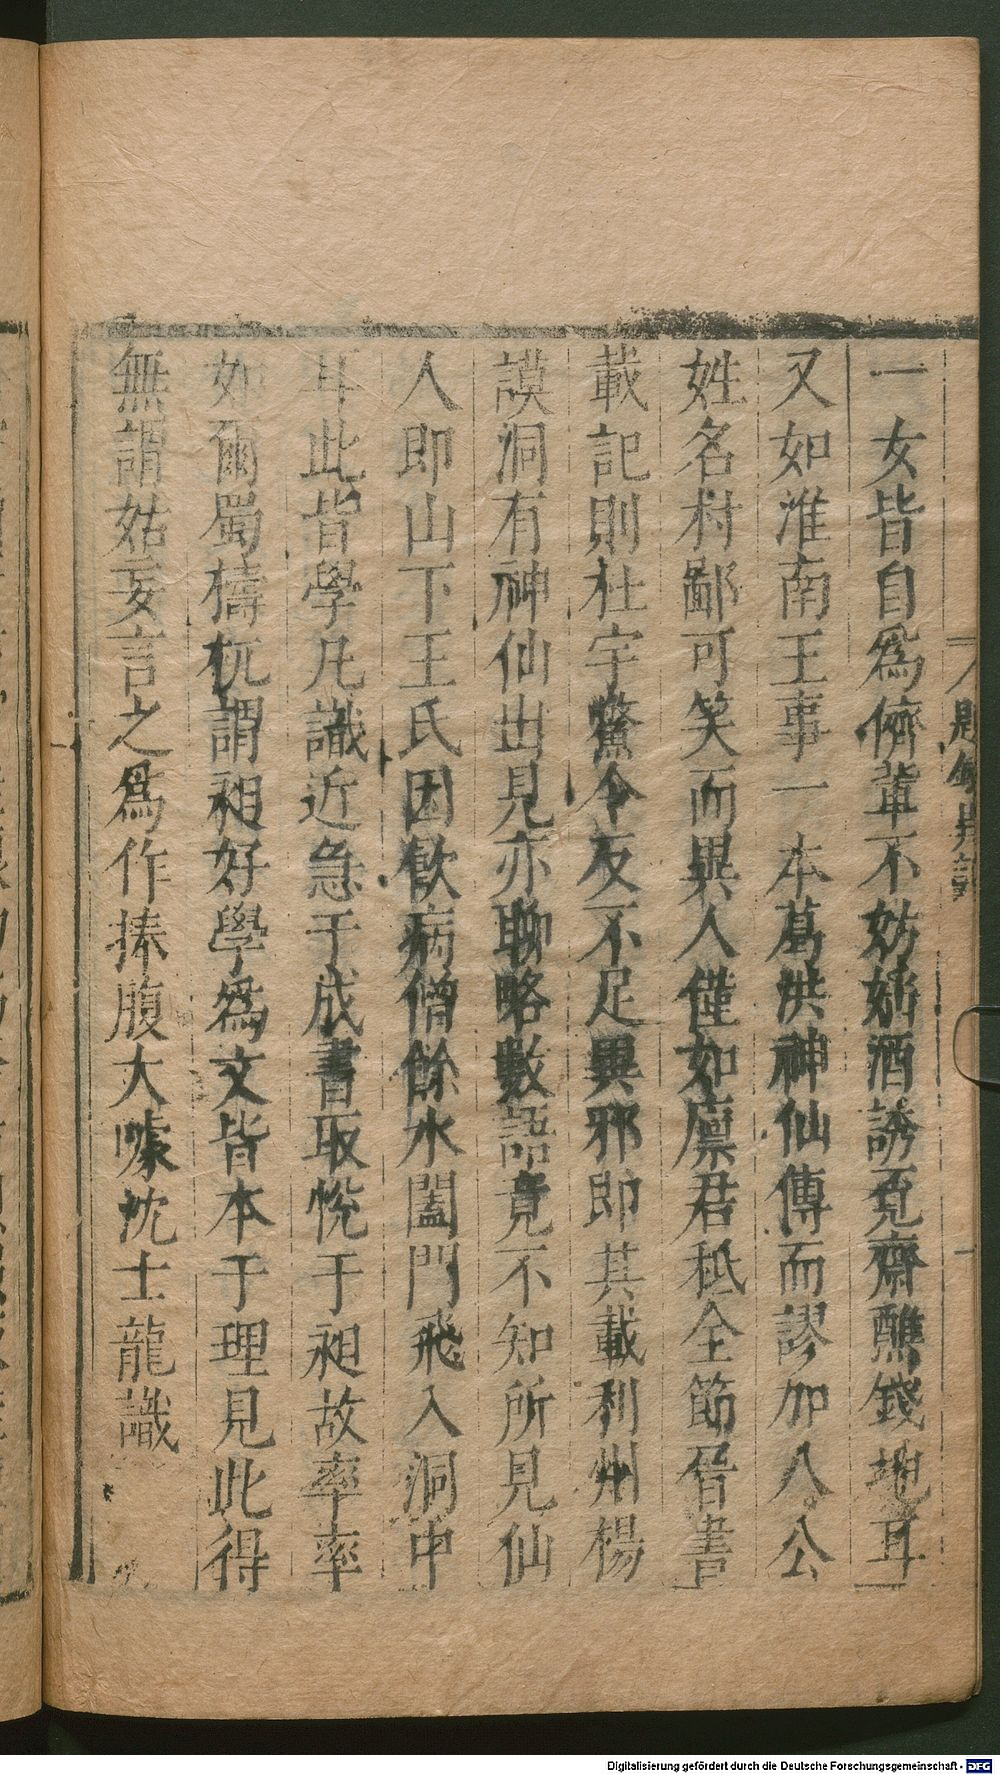 一女皆自爲儕輩不妨婍酒誘覓齋醮錢地耳
又如淮南王事一本葛洪神仙傳而謬加八公
姓名村鄙可笑而異人僅如廩君秪全節晉書
載記則杜宇鱉令反不足異邪即其載利州楊
謨洞有神仙出見亦聊略數語竟不知所見仙
人即山下王氏因飲病僧餘水闔門飛入洞中
耳此皆學凡識近急于成書取悅于昶故率率
如爾蜀檮杌謂昶好學爲文皆本于理見此得
無謂姑妄言之爲作捧腹大噱沈士龍識
題錄異記
一
Digitalisierung gefördert durch die Deutsche Forschungsgemeinschaft - DFG